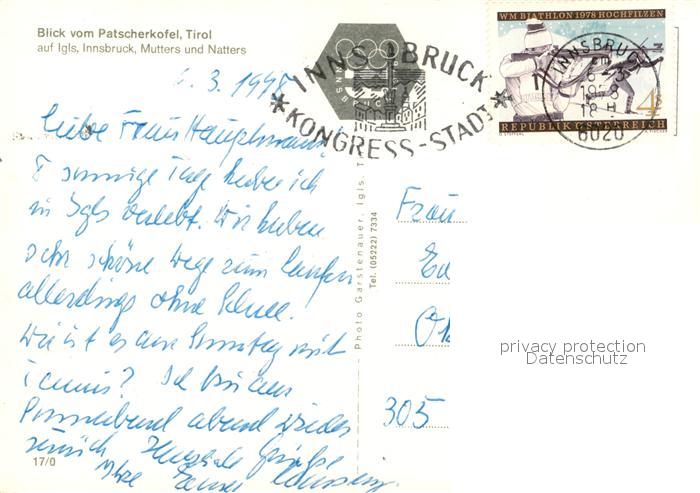 Blick vom Patscherkofel, Tirol
auf Igls, Innsbruck, Mutters und Natters
6.3.1978
Liebe Frau Hauptmann,
8 sonnige Tage haben ich
in Igls verlebt. Wir haben
sehr schöne Wege zum Laufen
allerdings ohne Schnee.
Wie ist es am Sonntag mit
Tennis? Ich bin am
Sonnabend abend wieder
zurück Herzliche Grüße
Ihre
17/0
Photo Garstenauer, Igls, T
Tel. (05222) 7334
INNSBRUCK
INNSBRUCK
KONGRESS-STADT
WM BIATHLON 1978 HOCHFILZEN
4S
REPUBLIK ÖSTERREICH
INNSBRUCK
1978
18 H
6020
Frau
305
privacy protection
Datenschutz